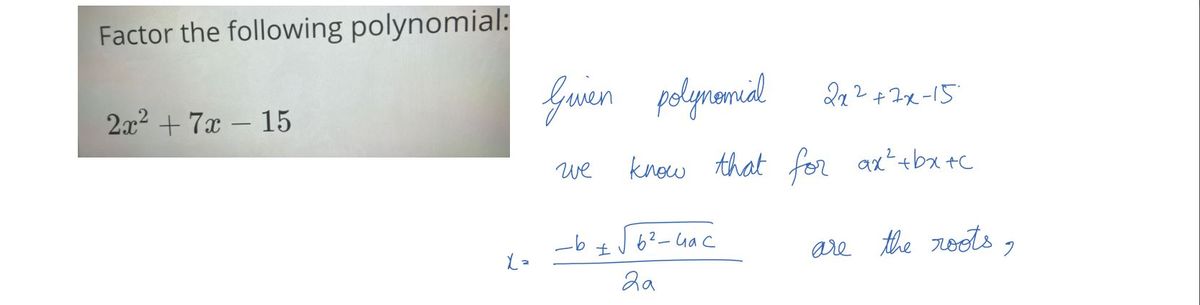 Factor the following polynomial:
2x² + 7x − 15
Given polynomial 2x²+7x-15
we know that for ax²+bx+c
x = (-b ± √(b²-4ac))/2a are the roots,